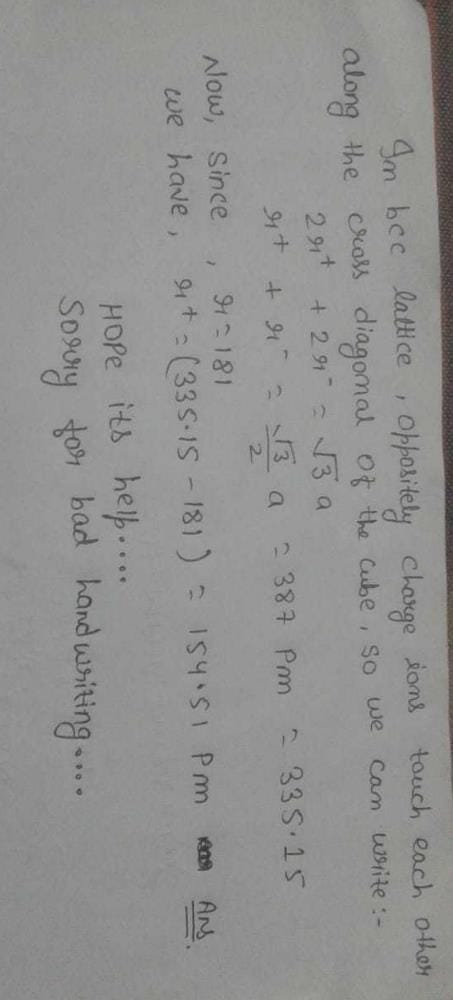 In bcc lattice, oppositely charge ions touch each other
along the cross diagonal of the cube, so we can write:-
2r⁺ + 2r⁻ = √3 a
r⁺ + r⁻ = √3/2 a = 387 Pm = 335.15
Now, since, r=181
we have, r⁺ = (335.15 - 181) = 154.51 Pm Ans.
HOPE its help....
Sorry for bad handwriting....